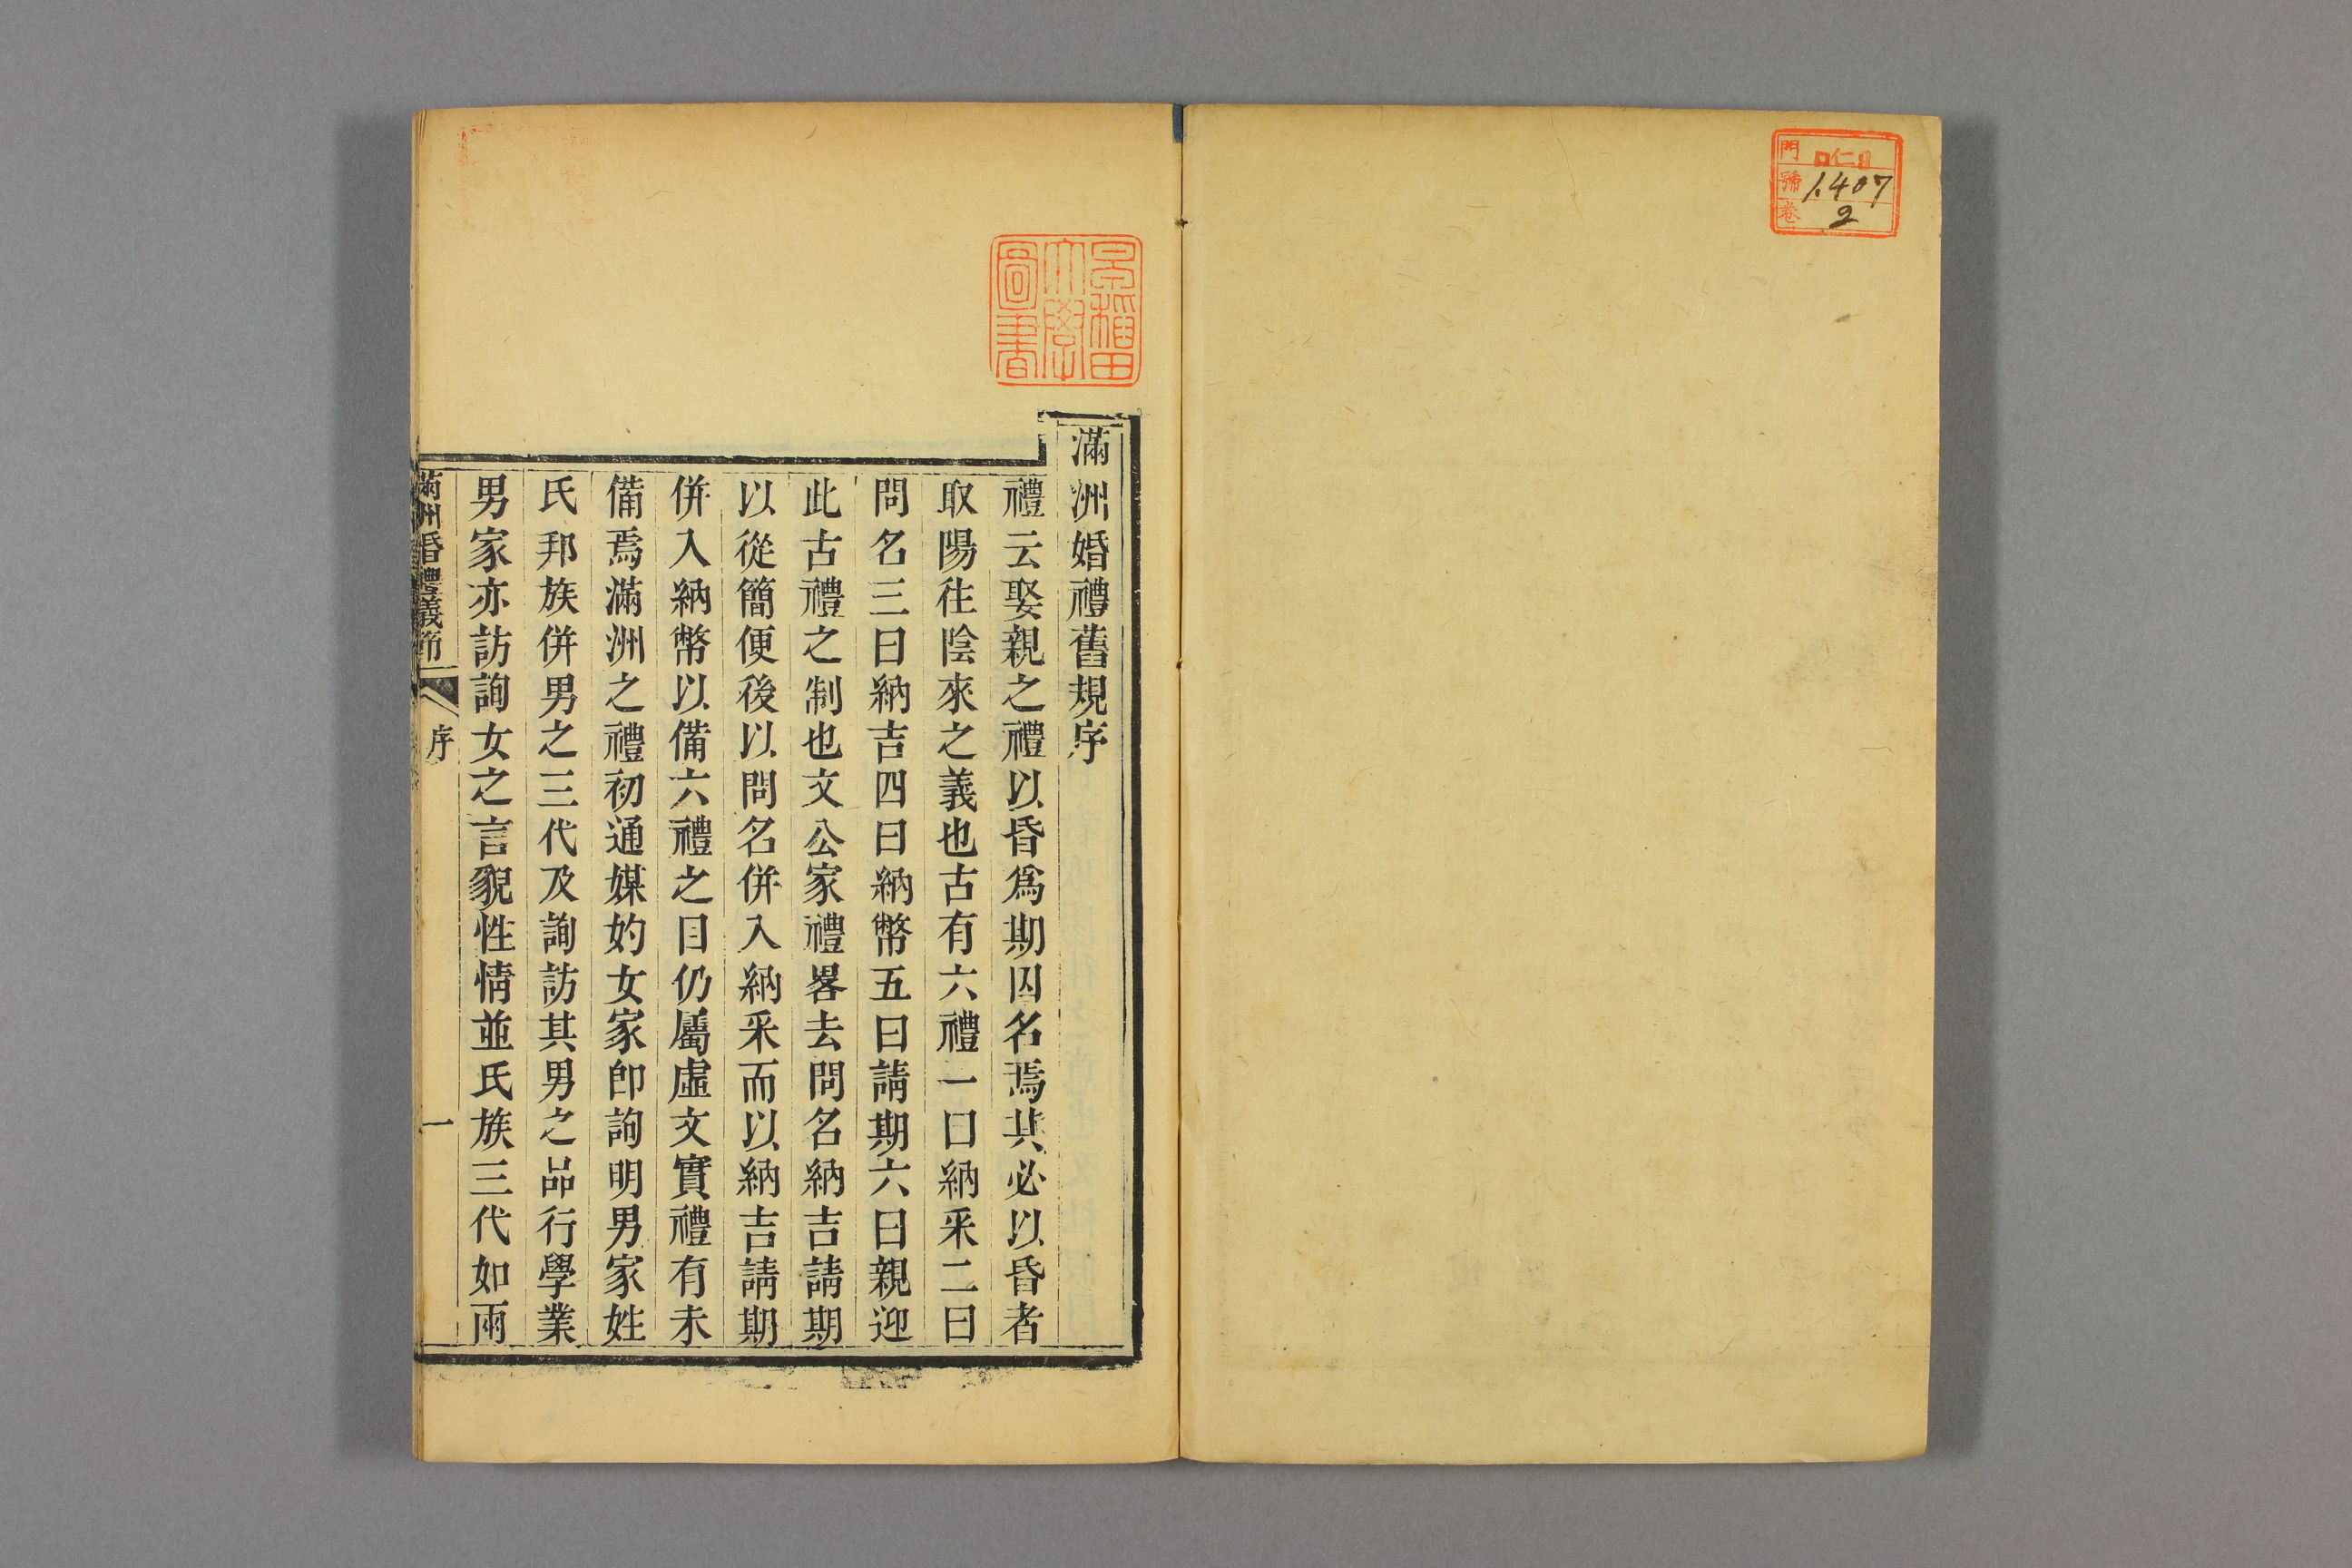 門 仁
號 1.407
卷 2
早稻田
大學
圖書
滿洲婚禮舊規序
禮云娶親之禮以昏爲期因名焉其必以昏者
取陽往陰來之義也古有六禮一曰納采二曰
問名三曰納吉四曰納幣五曰請期六曰親迎
此古禮之制也文公家禮畧去問名納吉請期
以從簡便後以問名併入納采而以納吉請期
併入納幣以備六禮之目仍屬虛文實禮有未
備焉滿洲之禮初通媒妁女家卽詢明男家姓
氏邦族併男之三代及詢訪其男之品行學業
男家亦訪詢女之言貌性情並氏族三代如兩
滿洲婚禮義節 序 一